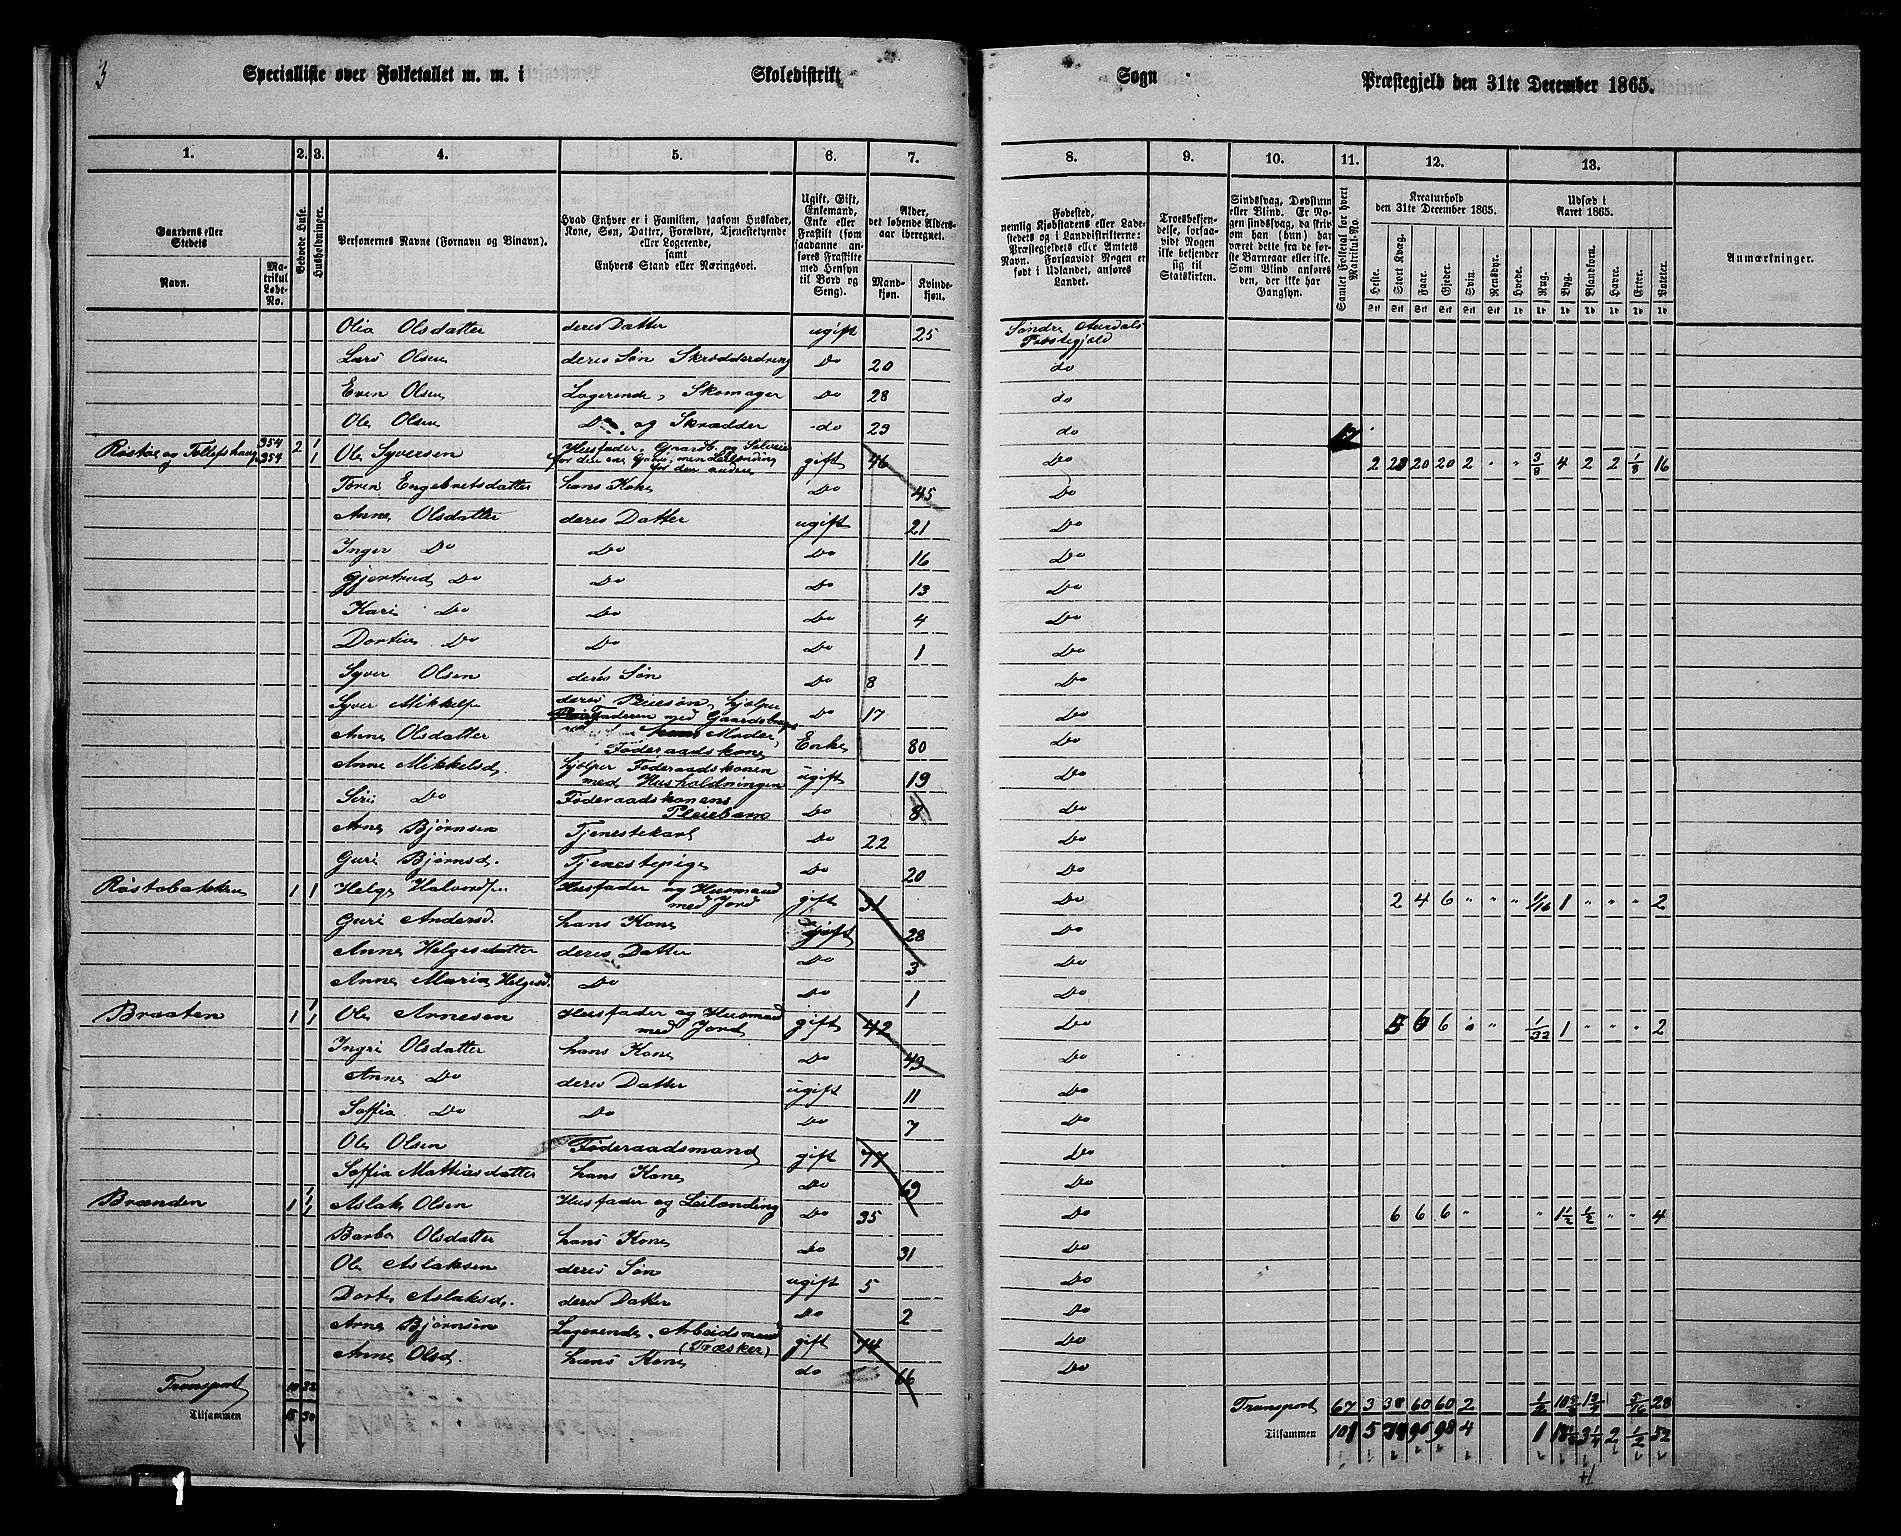 3
Specialliste over Folketallet m. m. i Skoledistrikt Sogn Præstegjeld den 31te December 1865.
1. 2. 3. 4. 5. 6. 7. 8. 9. 10. 11. 12. 13.
Gaardens eller Stedets
Navn.
Matrikul Løbe-No.
Beboede Huse.
Husholdninger.
Personernes Navne (Fornavn og Binavn).
Hvad Enhver er i Familien, saasom Husfader,
Kone, Søn, Datter, Forældre, Tjenestetyende
eller Logerende,
samt
Enhvers Stand eller Næringsvei.
Ugift, Gift,
Enkemand,
Enke eller
Fraskilt (som
saadanne anføres Fraskilte
med Hensyn
til Bord og
Seng).
Alder,
det løbende Aldersaar iberegnet.
Mandkjøn.
Kvindekjøn.
Fødested,
nemlig Kjøbstadens eller Ladestedets og i Landdistrikterne:
Præstegjeldets eller Amtets
Navn. Forsaavidt Nogen er
født i Udlandet, anføres
Landet.
Troesbekjendelse, forsaavidt Nogen
ikke bekjender
sig til
Statskirken.
Sindssvag, Døvstum
eller Blind. Er Nogen sindssvag, da skrives om han (hun) har
været dette fra de første Barneaar eller ikke.
Som Blind anføres
den, der ikke har
Gangsyn.
Samlet Folketal for hvert Matrikul-No.
Kreaturhold
den 31te December 1865.
Heste. Stort Kvæg. Faar. Gjeder. Svin. Rensdyr.
Udsæd i
Aaret 1865.
Hvede. Rug. Byg. Blandkorn. Havre. Erter. Poteter.
Anmærkninger.
Olia Olsdatter deres Datter ugift 25 Søndre Aurdals Præstegjeld
Lars Olsen deres Søn Skrædderdreng Do 20 do
Even Olsen Logerende, Skomager Do 28 do
Ole Olsen Do og Skrædder do 23 do 17
Røstøe og Tollefshaug 354 354 2 1 1 Ole Syversen Husfader, Gaardb. og Selveier for den ene Gaard, men Leilænding for den anden gift 46 Do 2 20 20 2 " " 3/8 4 2 2 1/8 16
Toren Engebretsdatter hans Kone Do 45 Do
Anne Olsdatter deres Datter ugift 21 Do
Inger Do Do Do 16 Do
Gjertrud Do Do Do 13 Do
Kari Do Do Do 4 Do
Dortia Do Do Do 1 Do
Syver Olsen deres Søn Do 8 Do
Syver Mikkels. deres Pleiesøn, hjelper Pleiefaderen med Gaardsbruget Do 17 Do
Anne Olsdatter Moder, Føderaadskone Enke 80 Do
Anne Mikkelsd. hjelper Føderaadskonen med Husholdningen ugift 19 Do
Siri Do Føderaadskonens Pleiebarn Do 8 Do
Arne Bjørnsen Tjenestekarl Do 22 Do
Guri Bjørnsd. Tjenestepige Do 20 Do
Røstøbakken 1 1 Helge Halvords. Husfader og Husmand med Jord gift 31 Do 2 4 6 " " " 1/16 1 " " " 2
Guri Andersd. hans Kone gift 28 Do
Anne Helgesdatter deres Datter Do 3 Do
Anne Maria Helgesd. Do Do 1 Do
Braaten 1 1 1 Ole Arnesen Husfader og Husmand med Jord gift 42 Do 6 6 " 1/32 1 " " " 2
Ingri Olsdatter hans Kone Do 43 Do
Anne Do deres Datter ugift 11 Do
Soffia Do Do Do 7 Do
Ole Olsen Føderaadsmand gift 77 Do
Soffia Mathiasdatter hans Kone Do 69 Do
Brænden 1 1 1 Aslak Olsen Husfader og Leilænding Do 35 Do 6 6 6 " " 1 1/2 1/2 " " 4
Barbo Olsdatter hans Kone do 31 Do
Ole Aslaksen deres Søn ugift 5 Do
Dorte Aslaksd. deres Datter Do 2 Do
Arne Bjørnsen Logerende, Arbeidsmand (Træsker) gift 74 Do
Anne Olsd. hans Kone do 66 Do
Transport 10 22 Transport 67 3 38 60 60 2 5/16 28
Tilsammen 15 30 Tilsammen 101 5 96 98 4 1 3 1/4 2 1/2 52
1